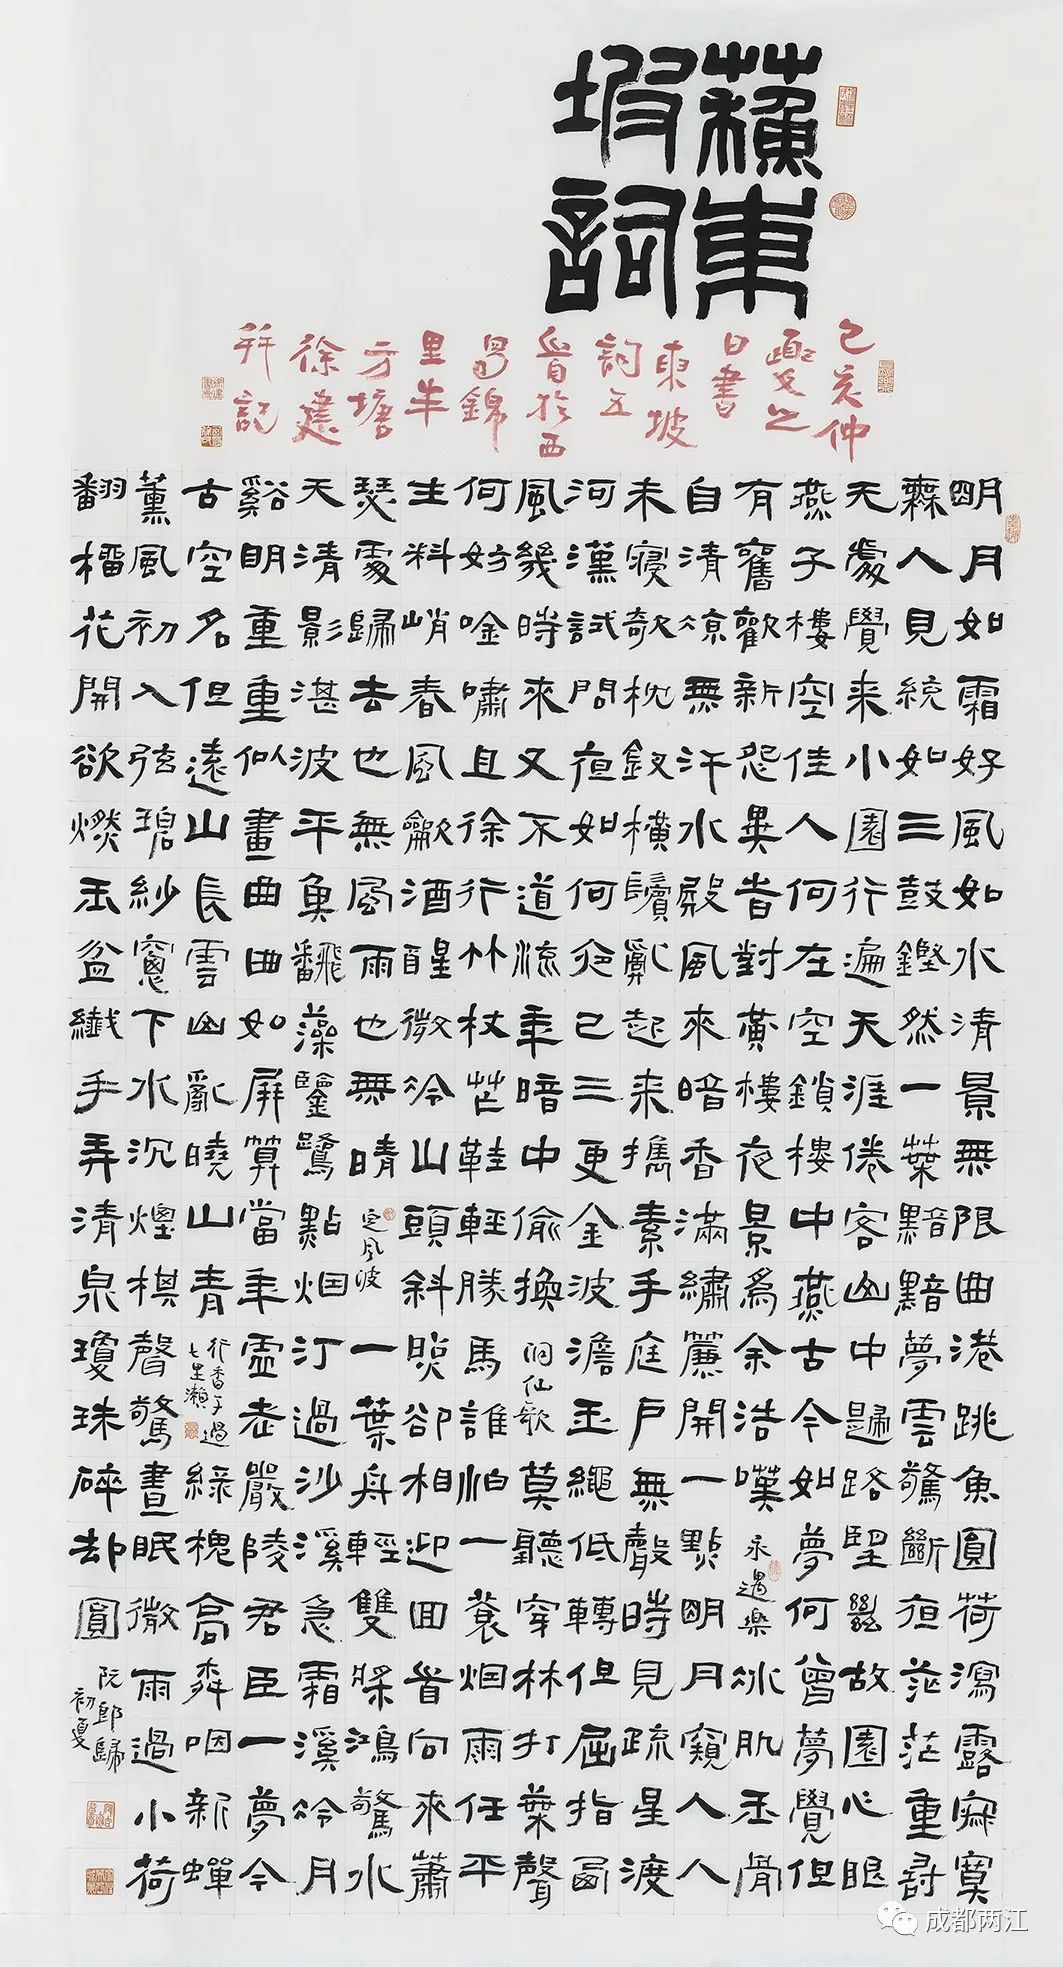 蘇東
坡詞
己亥仲
之
日書
東坡
詞五
首於西
蜀錦
里半
方塘
徐建
并記
明月如霜好風如水清景無限曲港跳魚圓荷瀉露寂寞
無人見統如三鼓鏗然一葉黯黯夢雲驚斷夜茫茫重尋
无處覺来小園行遍天涯倦客山中歸路望斷故園心眼
燕子樓空佳人何在空鎖樓中燕古今如夢何曾夢覺但
有舊歡新怨異旹對黃樓夜景為余浩嘆 永遇樂 冰肌玉骨
自清涼無汗水殿風來暗香滿繡簾開一點明月窺人人
未寢欹枕釵橫鬢亂起来攜素手庭戶無聲時見疏星渡
河漢試問夜如何夜已三更金波澹玉繩低轉但屈指西
風幾時來又不道流年暗中偷換 洞仙歌 莫聽穿林打葉聲
何妨吟嘯且徐行竹杖芒鞋輕勝馬誰怕一蓑烟雨任平
生料峭春風龡酒醒微冷山頭斜照卻相迎回首向來蕭
瑟處歸去也無風雨也無晴 定風波 一葉舟輕雙槳鴻驚水
天清影湛波平魚翻藻鑒鷺點烟汀過沙溪急霜溪冷月
谿明重重似畫曲曲如屏算當年虛老嚴陵君臣一夢今
古空名但遠山長雲山亂曉山青 行香子過七里瀨 綠槐高柳咽新蟬
薰風初入弦碧紗窗下水沉煙棋聲驚晝眠微雨過小荷
翻榴花開欲燃玉盆纖手弄清泉瓊珠碎却圓 阮郎歸初夏
成都两江